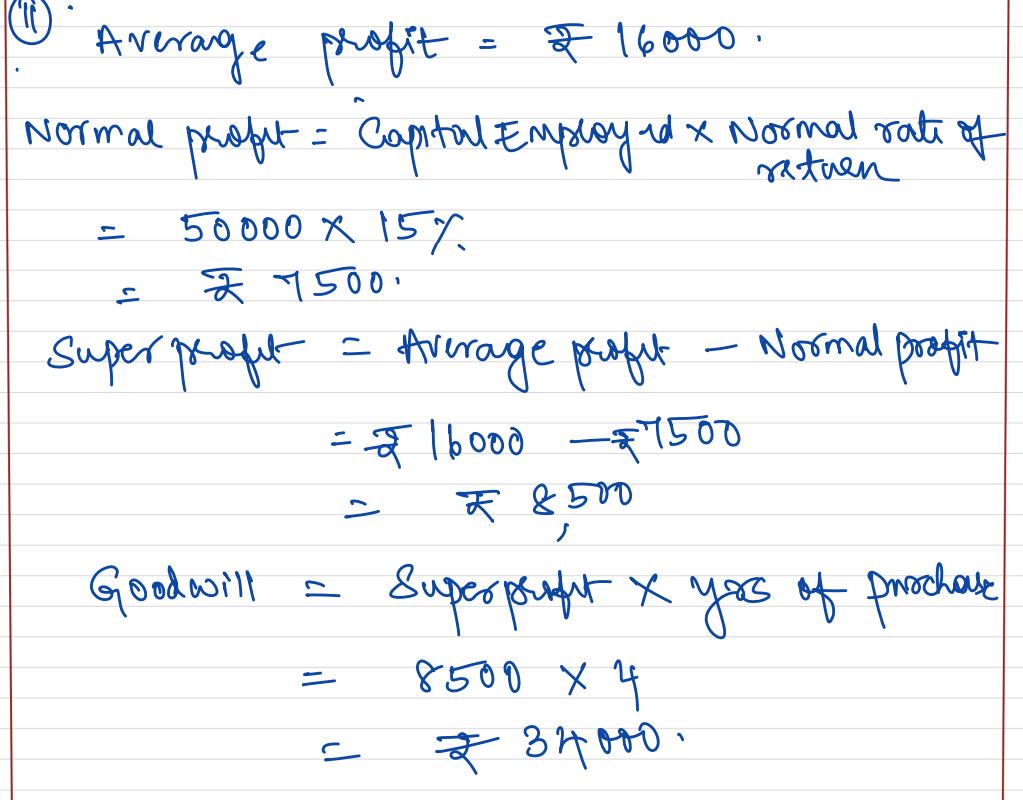 (ii) Average profit = ₹ 16000.
Normal profit = Capital Employed x Normal rate of
return
= 50000 x 15%
= ₹ 7500.
Super profit = Average profit - Normal profit
= ₹ 16000 - ₹7500
= ₹ 8,500
Goodwill = Super profit x yrs of purchase
= 8500 x 4
= ₹ 34000.